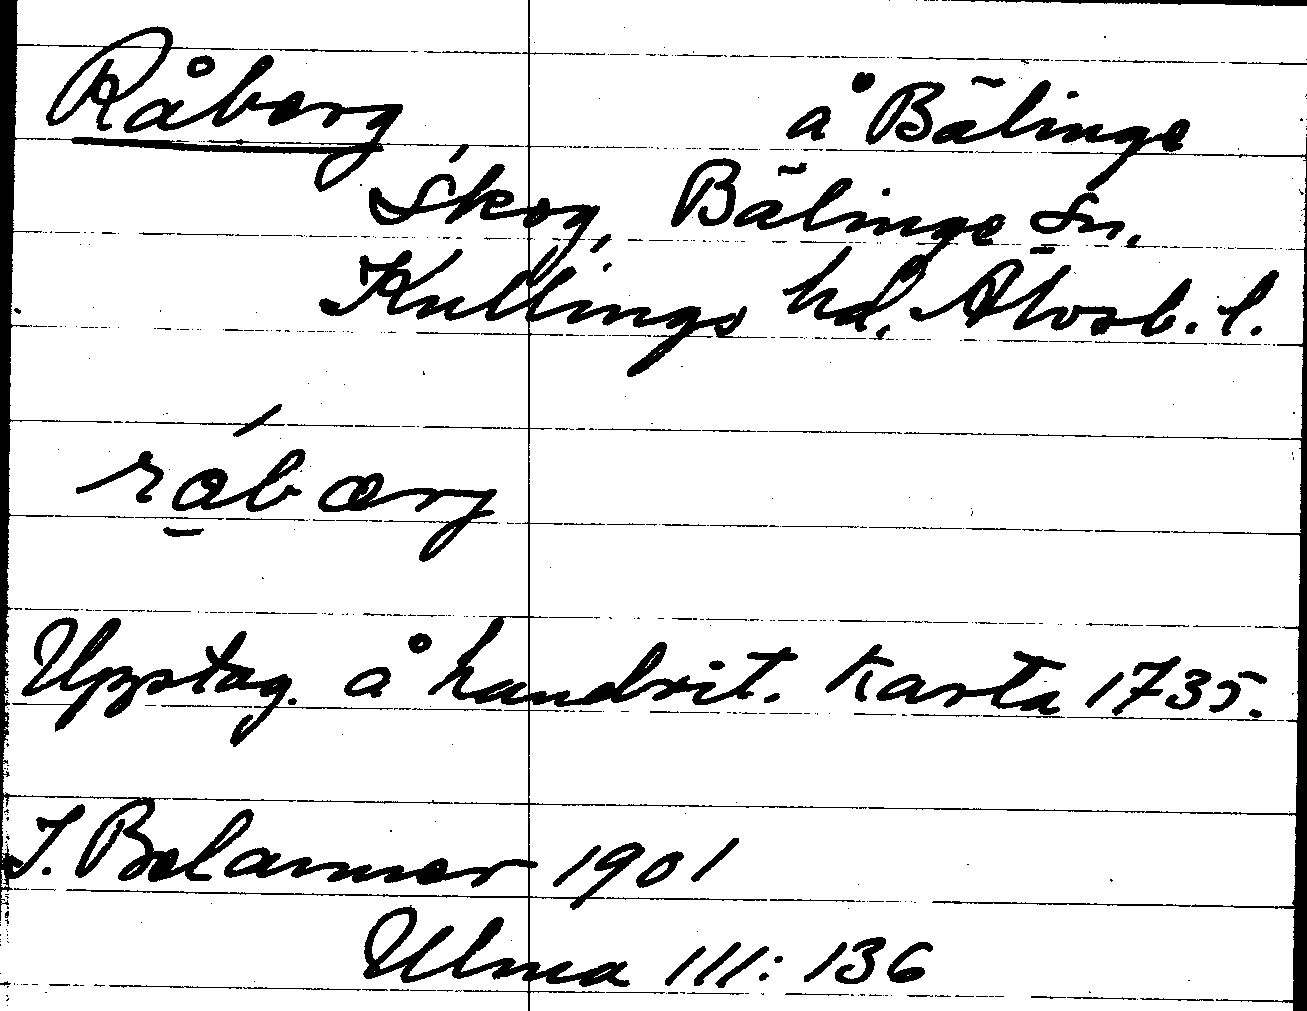 Råberg å Bälinge
Skog, Bälinge Sn.
Kullings hd. Älvsb. l.
råbærg
Upptag. å handrit. karta 1735.
J. Belanner 1901
Ulma 111: 136